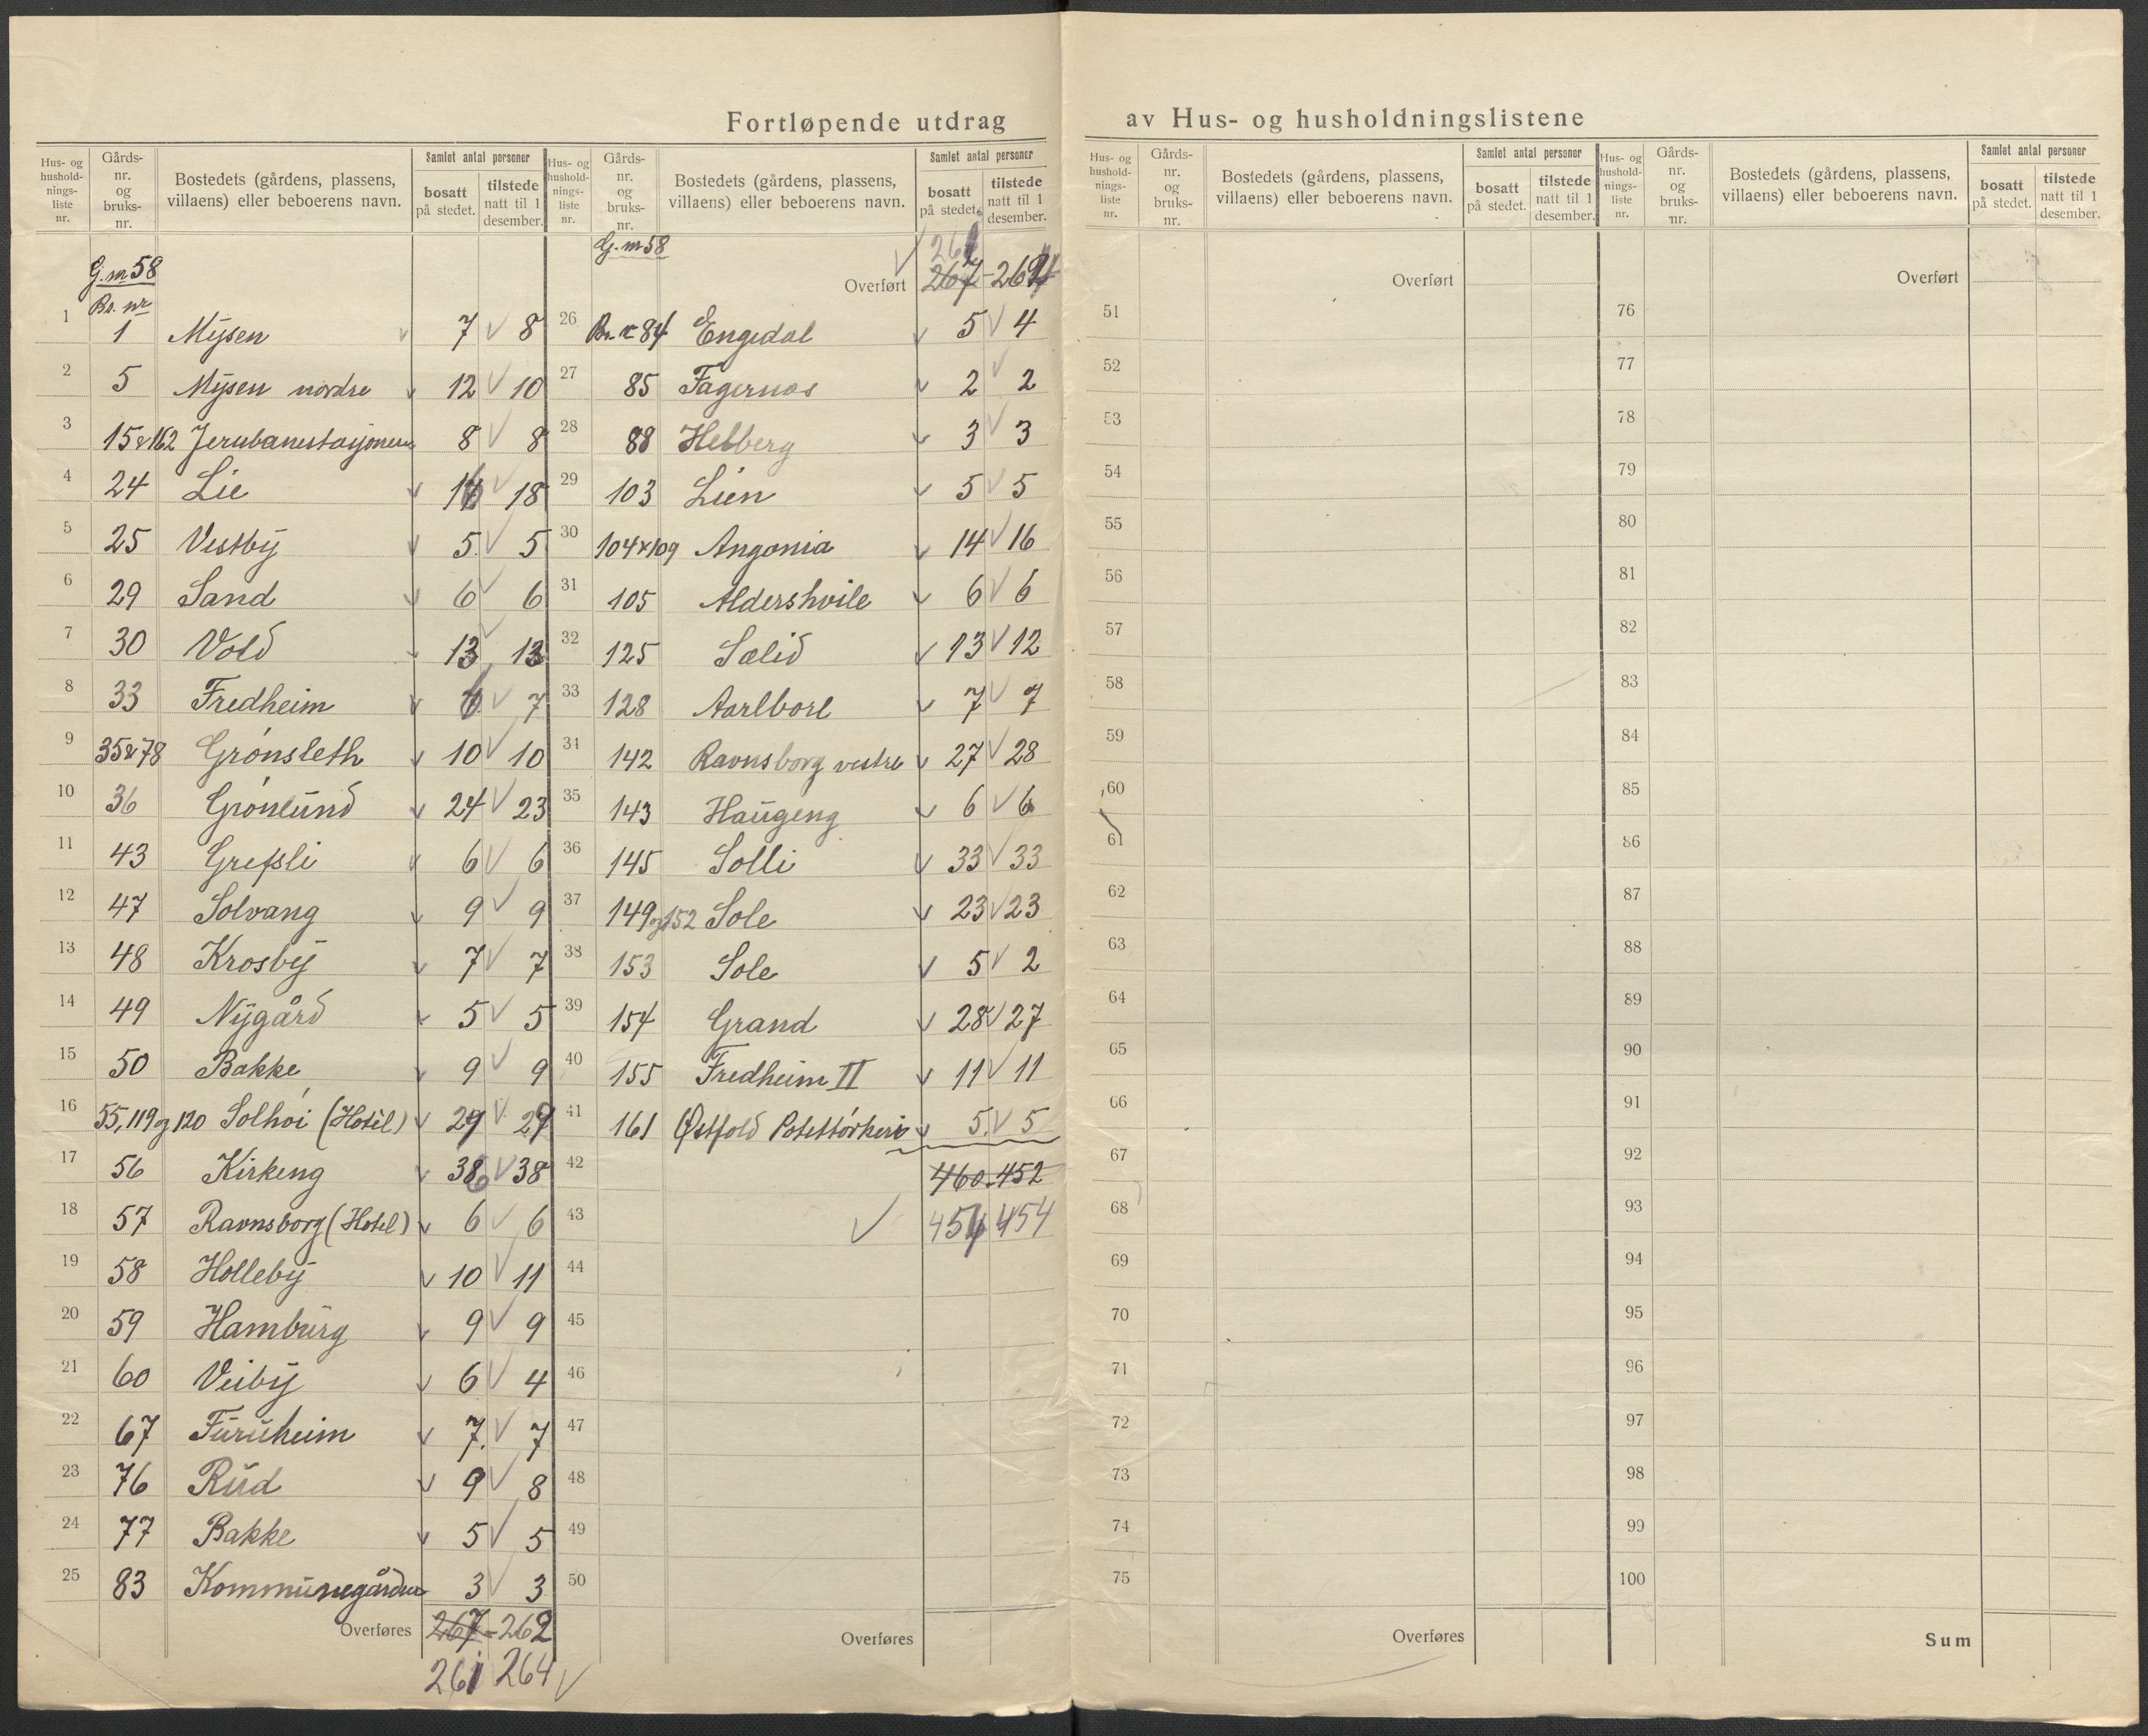 Fortløpende utdrag av Hus- og husholdningslistene
Hus- og hushold-nings-liste nr.
Gårds-nr. og bruks-nr.
Bostedets (gårdens, plassens, villaens) eller beboerens navn.
Samlet antal personer
bosatt på stedet.
tilstede natt til 1 desember.
G. nr 58
Br. nr
1 1 Mysen 7 8
2 5 Mysen nordre 12 10
3 15 & 162 Jernbanestasjonen 8 8
4 24 Lie 18
5 25 Vestby 5 5
6 29 Sand 6 6
7 30 Vold 13 13
8 33 Fredheim 6 7
9 35 & 78 Grønsleth 10 10
10 36 Grønlund 24 23
11 43 Grefsli 6 6
12 47 Solvang 9 9
13 48 Krosby 7 7
14 49 Nygård 5 5
15 50 Bakke 9 9
16 55, 119 og 120 Solhøi (Hotel) 29 29
17 56 Kirkeng 38 38
18 57 Ravnsborg (Hotel) 6 6
19 58 Holleby 10 11
20 59 Hamburg 9 9
21 60 Veiby 6 4
22 67 Furuheim 7 7
23 76 Rud 9 8
24 77 Bakke 5 5
25 83 Kommunegården 3 3
Overføres 267 - 262
261 264
Hus- og hushold-nings-liste nr.
Gårds-nr. og bruks-nr.
Bostedets (gårdens, plassens, villaens) eller beboerens navn.
Samlet antal personer
bosatt på stedet.
tilstede natt til 1 desember.
G. nr 58
261
Overført 267 - 264
26 Br. nr 84 Engedal 5 4
27 85 Fagernes 2 2
28 88 Helberg 3 3
29 103 Lien 5 5
30 104 & 109 Angonia 14 16
31 105 Aldershvile 6 6
32 125 Solid 13 12
33 128 Aarlbore 7 7
34 142 Ravnsborg vestre 27 28
35 143 Haugeng 6 6
36 145 Solli 33 33
37 149 og 152 Sole 23 23
38 153 Sole 5 2
39 154 Grand 28 27
40 155 Fredheim II 11 11
41 161 Østfold Potettørkeri 5 5
42 460 - 452
43 454 454
44
45
46
47
48
49
50
Overføres
Hus- og hushold-nings-liste nr.
Gårds-nr. og bruks-nr.
Bostedets (gårdens, plassens, villaens) eller beboerens navn.
Samlet antal personer
bosatt på stedet.
tilstede natt til 1 desember.
Overført
51
52
53
54
55
56
57
58
59
60
61
62
63
64
65
66
67
68
69
70
71
72
73
74
75
Overføres
Hus- og hushold-nings-liste nr.
Gårds-nr. og bruks-nr.
Bostedets (gårdens, plassens, villaens) eller beboerens navn.
Samlet antal personer
bosatt på stedet.
tilstede natt til 1 desember.
Overført
76
77
78
79
80
81
82
83
84
85
86
87
88
89
90
91
92
93
94
95
96
97
98
99
100
Sum